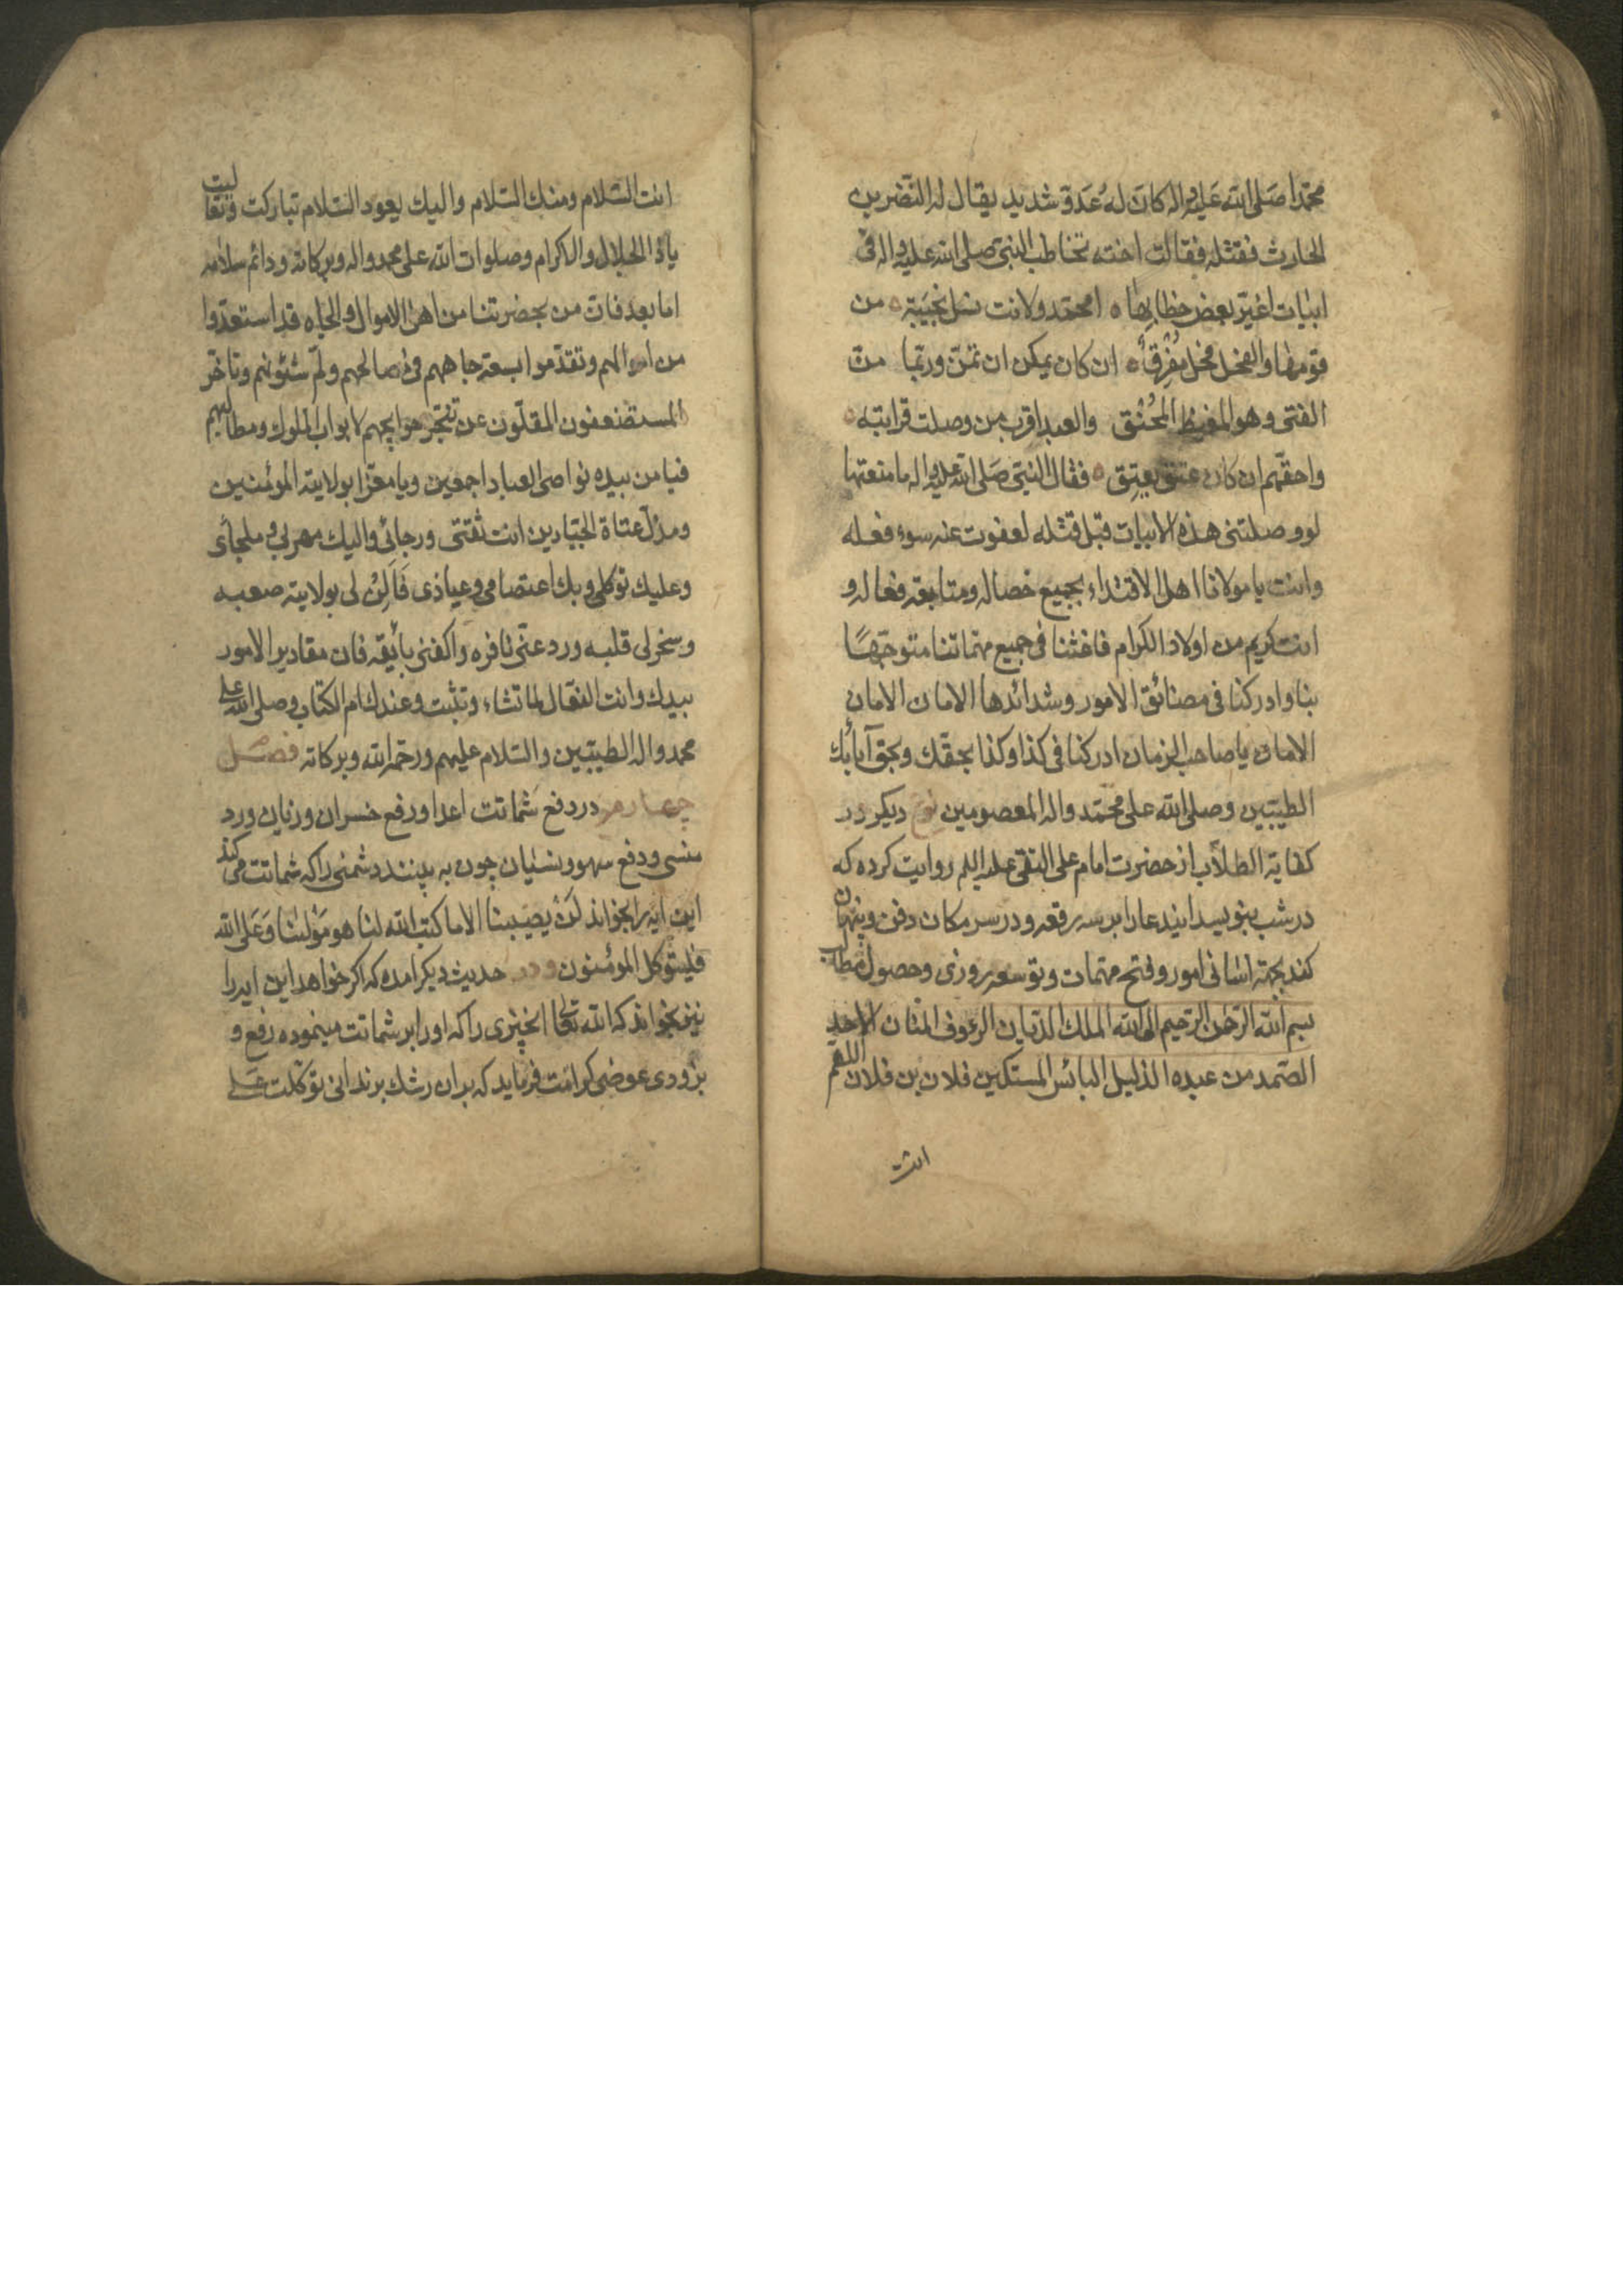 محمدا صَلی الله عَلیه واله کانَ لهُ عَدوّ شدید یقال له النّضر بن
الحارث فقتله فقالت اخته تخاطب النبیّ صلی الله علیه واله فی
ابیات اغیّر بعض خطابها ه امحمّد ولانت نسل نجیبَة ه من
قومها والفحل فحل مُعْرِقٌ ه ان کان یمکن ان تمنّ وربّما منّ
الفتی وهو المغیظ المُحْنَق والعبد اقرب من وصلت قرابته ه
واحقّهم ان کان عتق یعتِق ه فقال النبّی صَلی الله علیه واله ما منعتها
لو وصلتنی هذه الابیات قبل قتله لعفوت عنه سوء فعله
وانت یا مولانا اهل الاقتداء بجمیع خصاله ومتابعة فعاله و
انت کریم من اولاد الکرام فاغثنا فی جمیع مهمّاتنا متوجّهًا
بنا وادرکنا فی مضائق الامور وشدائدها الامان الامان
الامان یا صاحب الزمان ادرکنا فی کذا وکذا بحقّک وبحق آبائک
الطیّبین وصلی الله علی محمّد واله المعصومین نوع دیکر در
کفایة الطلاّب از حضرت امام علی النقی علیه السلم روایت کرده که
در شب بنویسد ایند عا را بر سه رقعه و در سر مکان دفن وپنهان
کند بجهة اسانی امور وفتح مهمات وتوسعه روزی وحصول مطالب
بسم الله الرّحمن الرّحیم الی الله الملک الدّیان الرؤف المنّان الاحد
الصّمد من عبده الذلیل البائس المستکین فلان بن فلان اللهم
انت
انت السّلام ومنک السّلام والیک یعود السّلام تبارکت وتعالیت
یا ذا الجلال والاکرام وصلوات الله علی محمد واله وبرکاته ودائم سلامه
اما بعد فان من بحضرتنا من اهل الاموال والجاه قد استعدّوا
من اموالهم وتقدّموا بسعة جاههم فی مصالحهم ولمّ شئونهم وتاخّر
المستضعفون المقلّون عن تنجّز حوایجهم لابواب الملوک ومطالبهم
فیا من بیده نواصی العباد اجمعین ویا معزّا بولایته المؤمنین
ومذلّ عتاة الجبّارین انت ثقتی ورجائی والیک مهربی وملجأی
وعلیک توکلی وبک اعتصامی وعیاذی فَاَلِنْ لی بولایته صعبه
وسخر لی قلبه ورد عنّی نافره واکفنی بائقه فان مقادیر الامور
بیدک وانت الفعّال لما تشاء وتثبت وعندک ام الکتاب وصلی الله علی
محمد واله الطیّبین والسّلام علیهم ورحمة الله وبرکاته فصل
چهارم در دفع شماتت اعدا ورفع خسران وزیان ورد
منسی ودفع سهو ونسیان چون به بینند دشمنی را که شماتت می کند
این ایه را بخواند لَنْ یصیبنا الا ما کتب الله لنا هو مَوْلٰنا وَعَلی الله
فلیتوکل المؤمنون ودر حدیث دیکر امده که اکر خواهد این ایه را
نیز بخواند که الله تعالی انچیزی را که او را بر شماتت مینموده رفع و
بزودی عوضی کرامت فرماید که بر ان رشک برند انی توکّلت علی